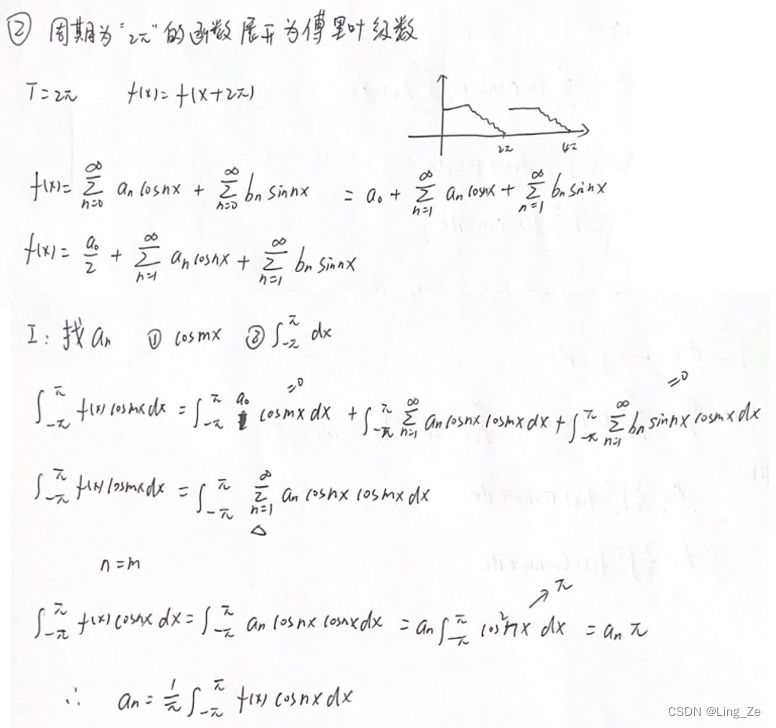 ② 周期为“2π”的函数展开为傅里叶级数
T=2π f(x)=f(x+2π)
2π 4π
f(x)=∑_{n=0}^{∞} aₙcosnx + ∑_{n=0}^{∞} bₙsinnx = a₀ + ∑_{n=1}^{∞} aₙcosnx + ∑_{n=1}^{∞} bₙsinnx
f(x)= a₀/2 + ∑_{n=1}^{∞} aₙcosnx + ∑_{n=1}^{∞} bₙsinnx
I: 找aₙ ① cosmx ② ∫_{-π}^{π} dx
∫_{-π}^{π} f(x)cosmxdx = ∫_{-π}^{π} a₀ cosmxdx =0 + ∫_{-π}^{π} ∑_{n=1}^{∞} aₙcosnxcosmxdx + ∫_{-π}^{π} ∑_{n=1}^{∞} bₙsinnxcosmxdx =0
∫_{-π}^{π} f(x)cosmxdx = ∫_{-π}^{π} ∑_{n=1}^{∞} aₙcosnxcosmxdx
△
n=m
∫_{-π}^{π} f(x)cosnxdx = ∫_{-π}^{π} aₙcosnxcosnxdx = aₙ∫_{-π}^{π} cos²nx dx ↗π = aₙπ
∴ aₙ = 1/π ∫_{-π}^{π} f(x)cosnxdx
CSDN @Ling_Ze